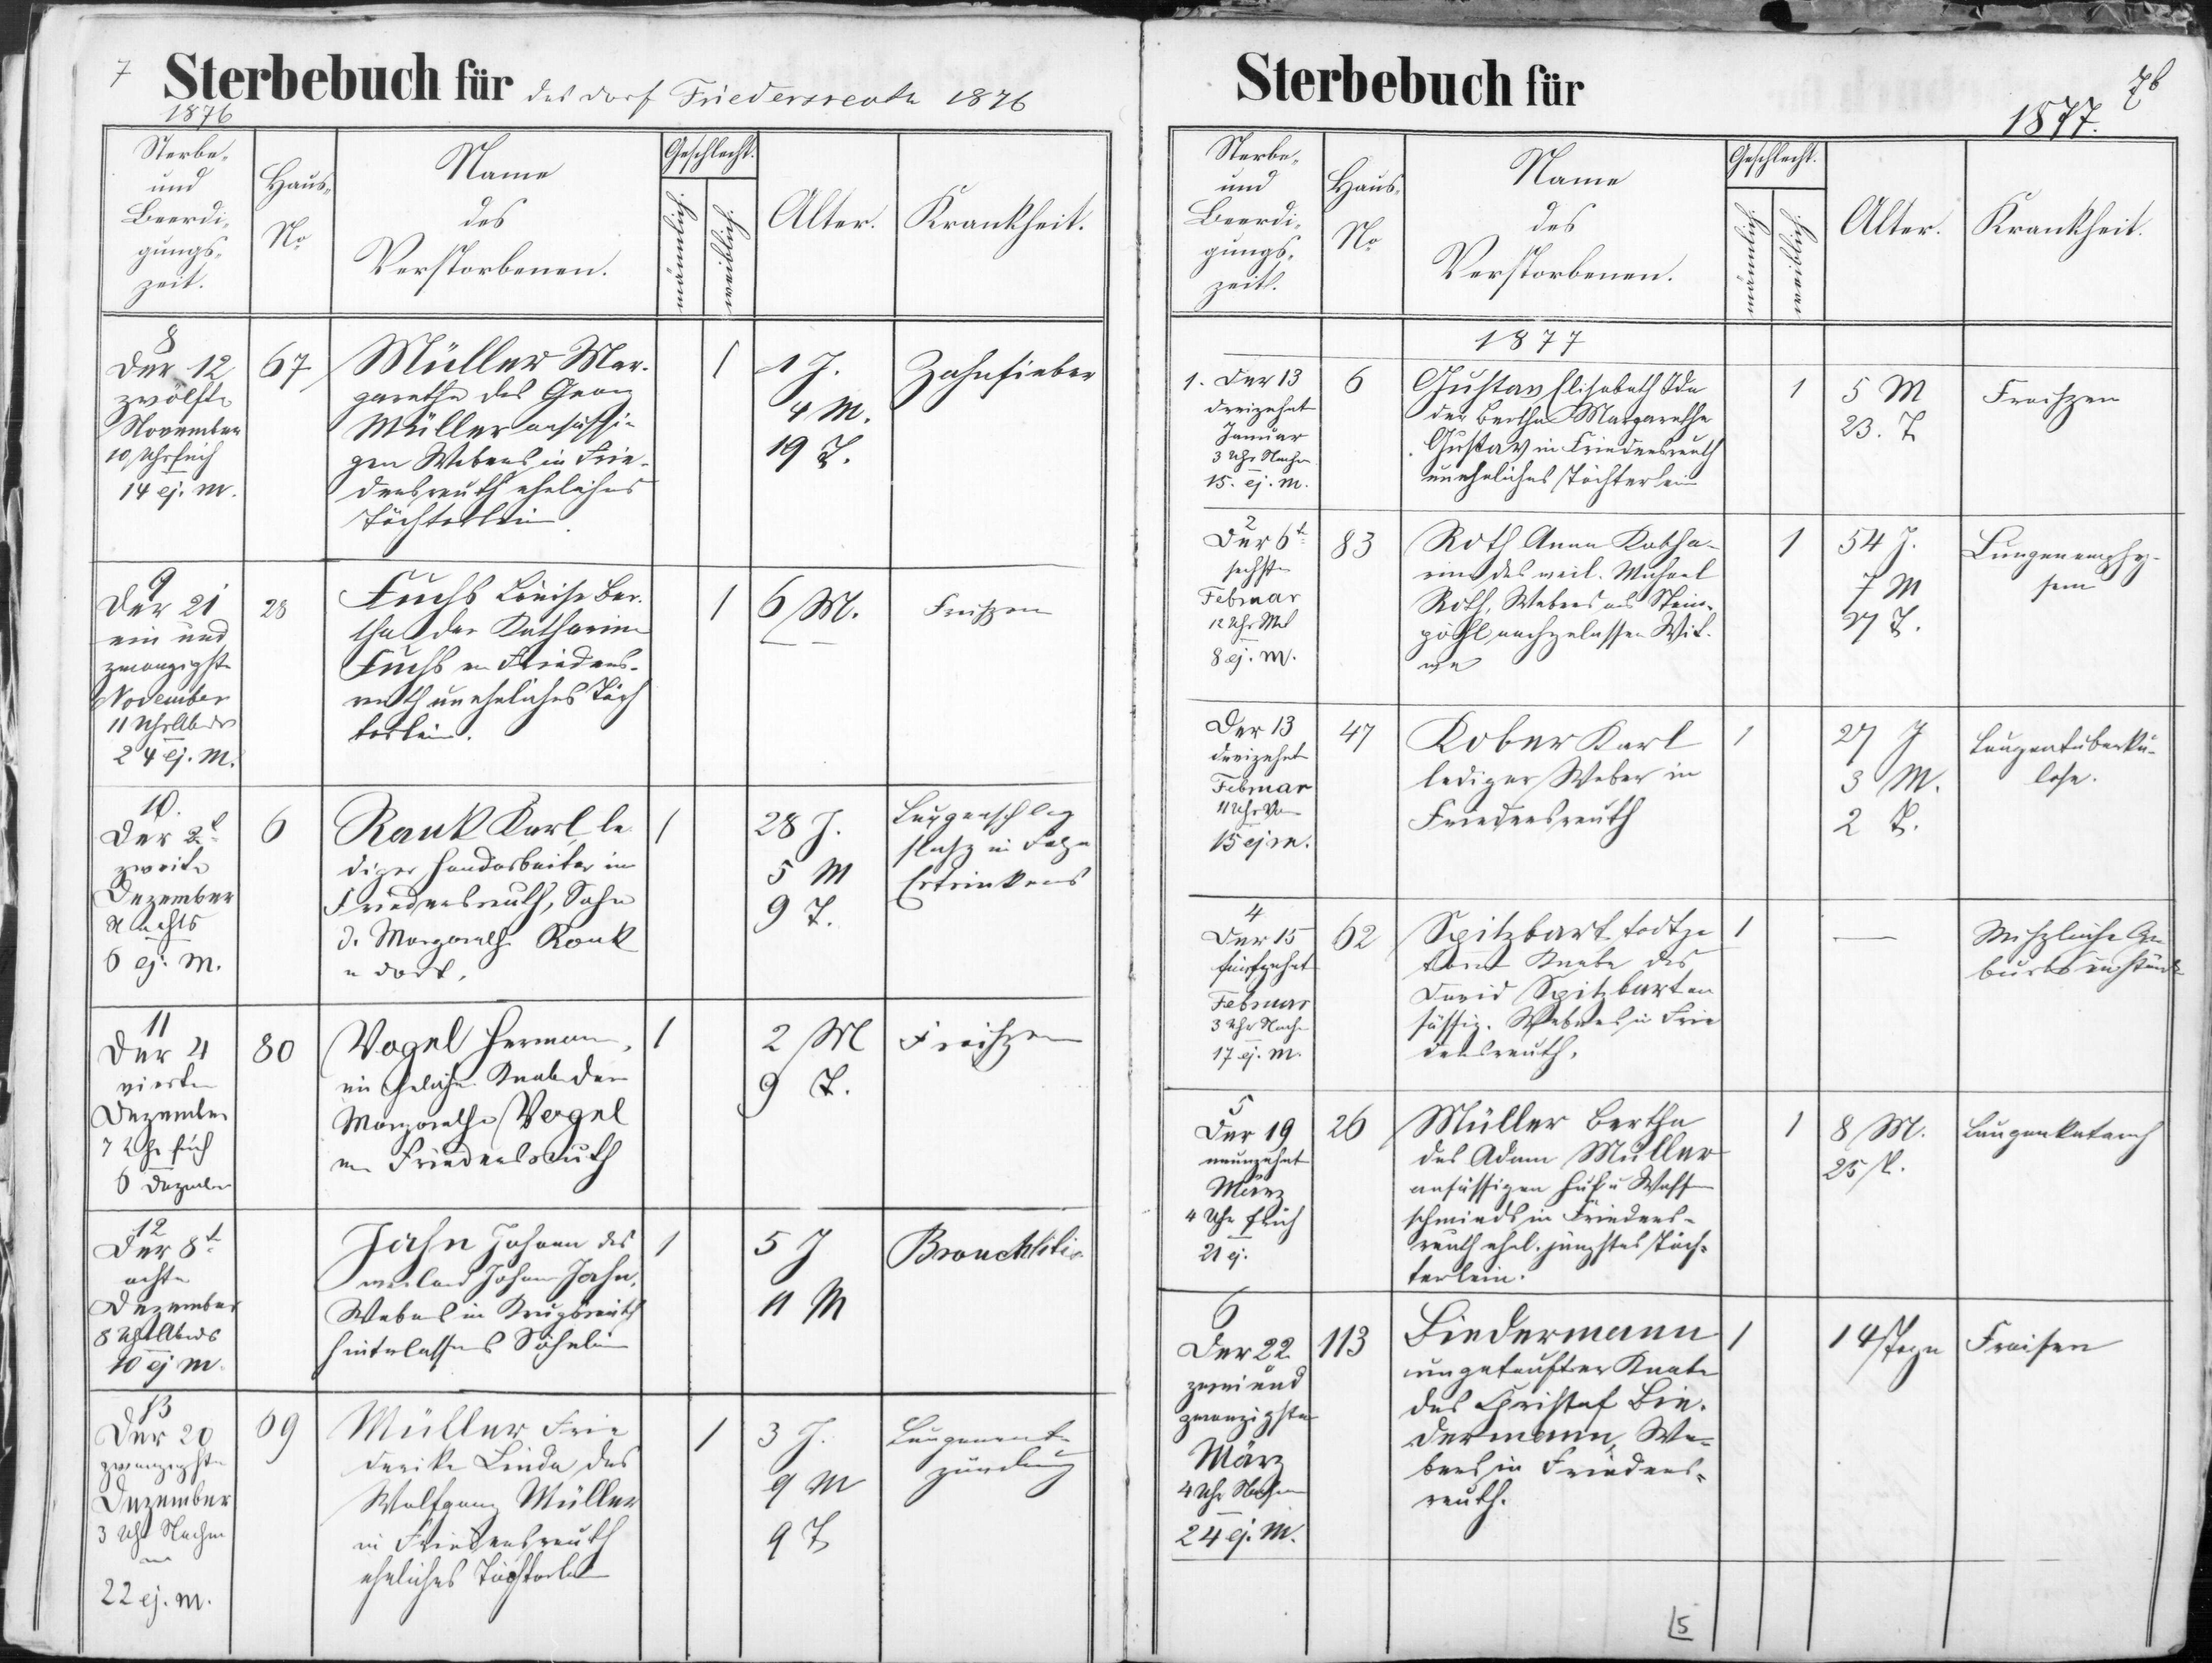 7
Sterbebuch für das Dorf Friedersreuth 1876
1876
Sterbe-
und
Beerdi-
gungs-
zeit.
Haus-
No
Name
des
Verstorbenen.
Geschlecht.
männlich.
weiblich.
Alter.
Krankheit.
8
Der 12
zwölfte
November
10 Uhr früh
14 ej. m.
67
Müller Mar-
garethe des Georg
Müller ansässi-
gen Webers in Frie-
dersreuth eheliches
Töchterlein.
1
1 J.
4 M.
19 T.
Zahnfieber
9
Der 21
ein und
zwanzigste
November
11 Uhr Abds
24 ej. M.
28
Fuchs Louise Ber-
tha der Katharina
Fuchs in Frieders-
reuth uneheliches Töch
terlein.
1
6 M.
Fraisen
10.
Der 2t
zweite
Dezember
Nachts
6 ej. m.
6
Rauk Karl le
diger Handarbeiter in
Friedersreuth, Sohn
d. Margareth Rauk
v dort.
1
28 J.
5 M
9 T.
in Folge
Ertrinkens
11
Der 4
vierte
Dezember
7 Uhr früh
6 Dezember
80
Vogel Herman,
Knabe der
Margarethe Vogel
in Friedersreuth
1
2 M
9 T.
Fraisen
12
Der 8t
achte
Dezember
8 Uhr Abends
10 ej m.
Jahn Johann des
weiland Johann Jahn,
Webers in Krugsreuth
hinterlassenes Söhnlein
1
5 J
11 M
Bronchitis
13
Der 20
zwanzigste
Dezember
3 Uhr Nachm
22 ej. m.
69
Müller Frie
derike Linda des
Wolfgang Müller
in Friedersreuth
eheliches Töchterlein
1
3 J.
9 M
9 T
Lungenent-
zündung
Sterbebuch für
7b
1877.
Sterbe-
und
Beerdi-
gungs-
zeit.
Haus-
No
Name
des
Verstorbenen.
Geschlecht.
männlich.
weiblich.
Alter.
Krankheit.
1877
1. Der 13
dreizehnte
Januar
3 Uhr Nachm
15. ej. m.
6
Gustav Elisabeth Ida
der Bertha Margarethe
Gustav in Friedersreuth
uneheliches Töchterlein
1
5 M
23. T
Fraisen
2
Der 6te
sechste
Februar
12 Uhr Mit
8 ej. m.
83
Roth Anna Katha-
rina des weil. Michael
Roth, Webers aus Stein-
pöhl nachgelassene Wit-
we
1
54 J.
7 M
27 T.
Lungenemphy-
sem
Der 13
dreizehnte
Februar
15 ej m.
47
Kober Karl
lediger Weber in
Friedersreuth
1
27 J
3 M.
2 T.
Lungentuberku-
lose.
4
Der 15
fünfzehnte
Februar
3 Uhr Nachm
17 ej. m.
62
Spitzbart todtge
borner Knabe des
David Spitzbart an
sässig. Webers in Frie
dersreuth.
1
—
Ge
burtsumstände
5
Der 19
neunzehnte
März
4 Uhr früh
21 ej.
26
Müller Bertha
des Adam Müller
ansässigen Huf u Waffen
schmieds in Frieders-
reuth ehel. jüngstes Töch-
terlein.
1
8 M.
25 T.
Lungenkatarrh
6
Der 22
zwei und
zwanzigste
März
4 Uhr Nachm
24 ej. M.
113
Biedermann
ungetaufter Knabe
des Christof Bie-
dermann, We-
bers in Frieders-
reuth.
1
14 Tage
Fraisen
5